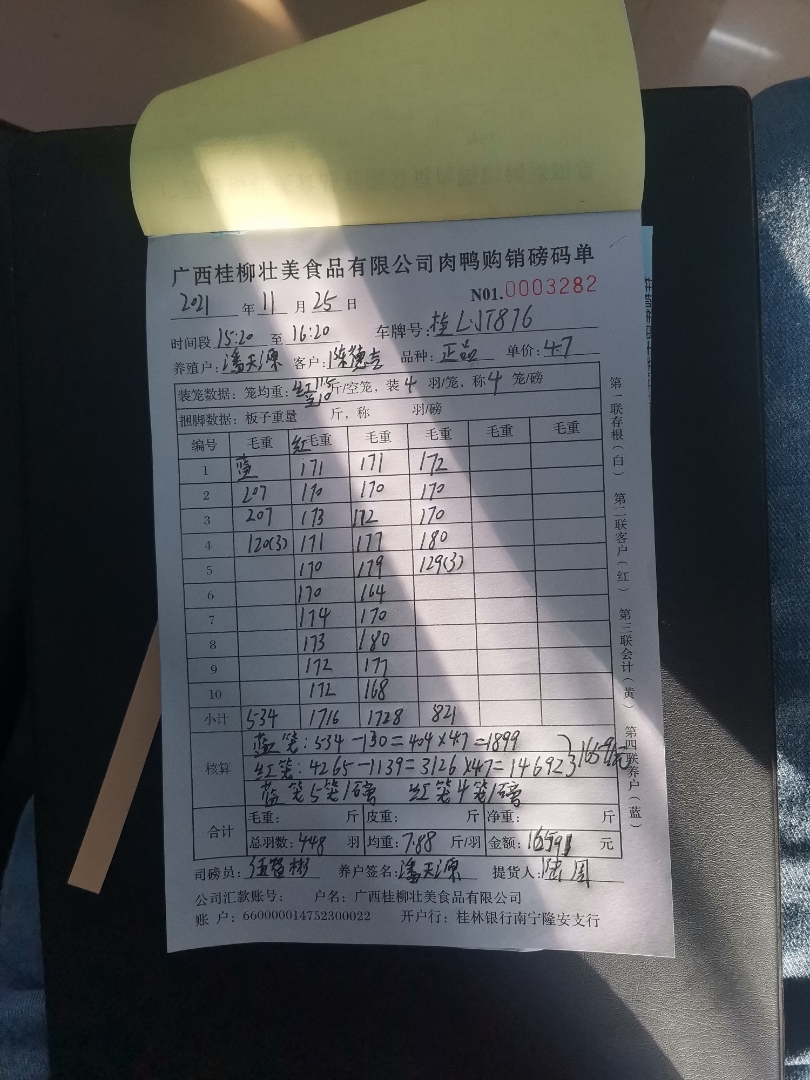 广西桂柳壮美食品有限公司肉鸭购销磅码单
2021 年 11 月 25 日 N01.0003282
时间段 15:20 至 16:20 车牌号: 桂L·JT876
养殖户: 潘天源 客户: 陈德吉 品种: 正品 单价: 4.7
装笼数据: 笼均重: 红11.5 斤/空笼, 装 4 羽/笼, 称 4 笼/磅
捆脚数据: 板子重量 斤, 称 羽/磅
编号 毛重 红毛重 毛重 毛重 毛重 毛重
1 蓝 171 171 172
2 207 170 170 170
3 207 173 172 170
4 120(3) 171 177 180
5 170 179 129(3)
6 170 164
7 174 170
8 173 180
9 172 177
10 172 168
小计 534 1716 1728 821
核算 蓝笼: 534-130=404×4.7=1899
红笼: 4265-1139=3126×4.7=14692 } 16591元
蓝笼5笼1磅 红笼4笼1磅
合计 毛重: 斤 皮重: 斤 净重: 斤
总羽数: 448 羽 均重: 7.88 斤/羽 金额: 16591 元
司磅员: 养户签名: 潘天源 提货人:
公司汇款账号: 户名: 广西桂柳壮美食品有限公司
账 户: 660000014752300022 开户行: 桂林银行南宁隆安支行
第一联存根(白) 第二联客户(红) 第三联会计(黄) 第四联养户(蓝)